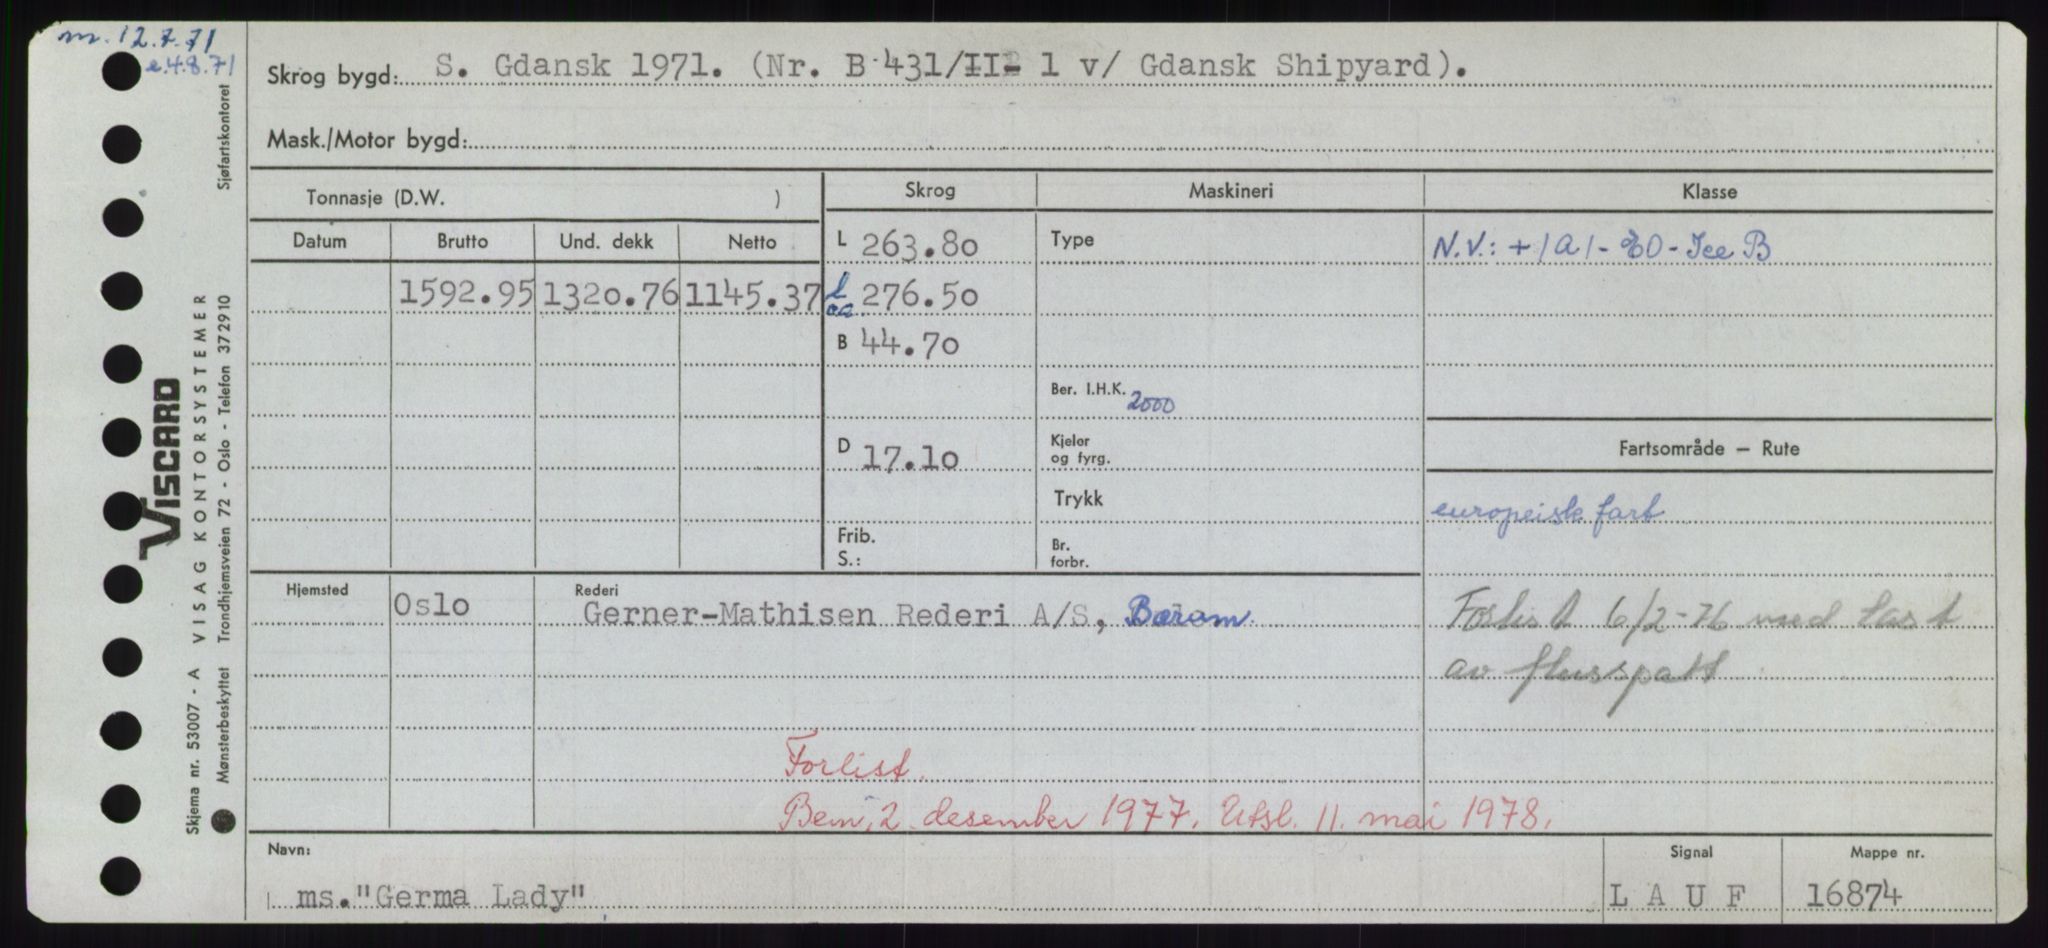 m. 12.7.71
e.4.8.71
Skrog bygd: S. Gdansk 1971. (Nr. B 431/II- 1 v/ Gdansk Shipyard).
Mask./Motor bygd:
Tonnasje (D.W. )
Skrog
Maskineri
Klasse
Datum
Brutto
Und. dekk
Netto
L 263.80
Type
N.V.: +1A1-EO-Ice B
1592.95
1320.76
1145.37
L oa 276.50
B 44.70
Ber. I.H.K. 2000
D 17.10
Kjeler og fyrg.
Fartsområde — Rute
Trykk
europeisk fart
Frib. S.:
Br. forbr.
Hjemsted
Oslo
Rederi
Gerner-Mathisen Rederi A/S, Bærum
Forlist 6/2-76 med last
av flusspatt
Forlist.
Bem. 2. desember 1977. Utsl. 11. mai 1978.
Navn:
ms."Germa Lady"
Signal
L A U F
Mappe nr.
16874
Skjema nr. 53007 - A VISAG KONTORSYSTEMER
Mønsterbeskyttet Trondhjemsveien 72 - Oslo - Telefon 372910
Sjøfartskontoret
VISCARD